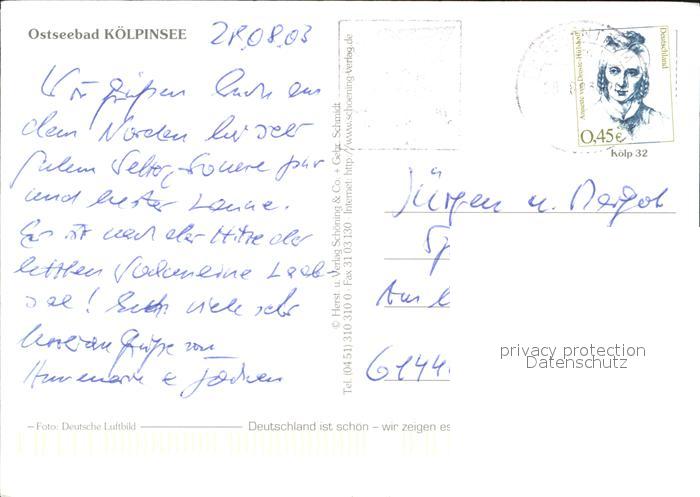 Ostseebad KÖLPINSEE
28.08.03
Wir grüßen Euch aus
dem Norden bei sehr
gutem Wetter, Sonne pur
und bester Laune.
Es ist nach der Hitze der
letzten Wochen eine Lab-
sal! Euch viele sehr
herzliche Grüße von
Annemarie & Jochen
Foto: Deutsche Luftbild
Deutschland ist schön – wir zeigen es
© Herst. u. Verlag Schöning & Co. + Gebr. Schmidt
Tel. (04 51) 310 310 0 · Fax 31 03 130 · Internet: http://www.schoening-verlag.de
Deutschland
Annette von Droste-Hülshoff
0,45€
Kölp 32
Jürgen u. Margot
Sp
Am
6144
privacy protection
Datenschutz